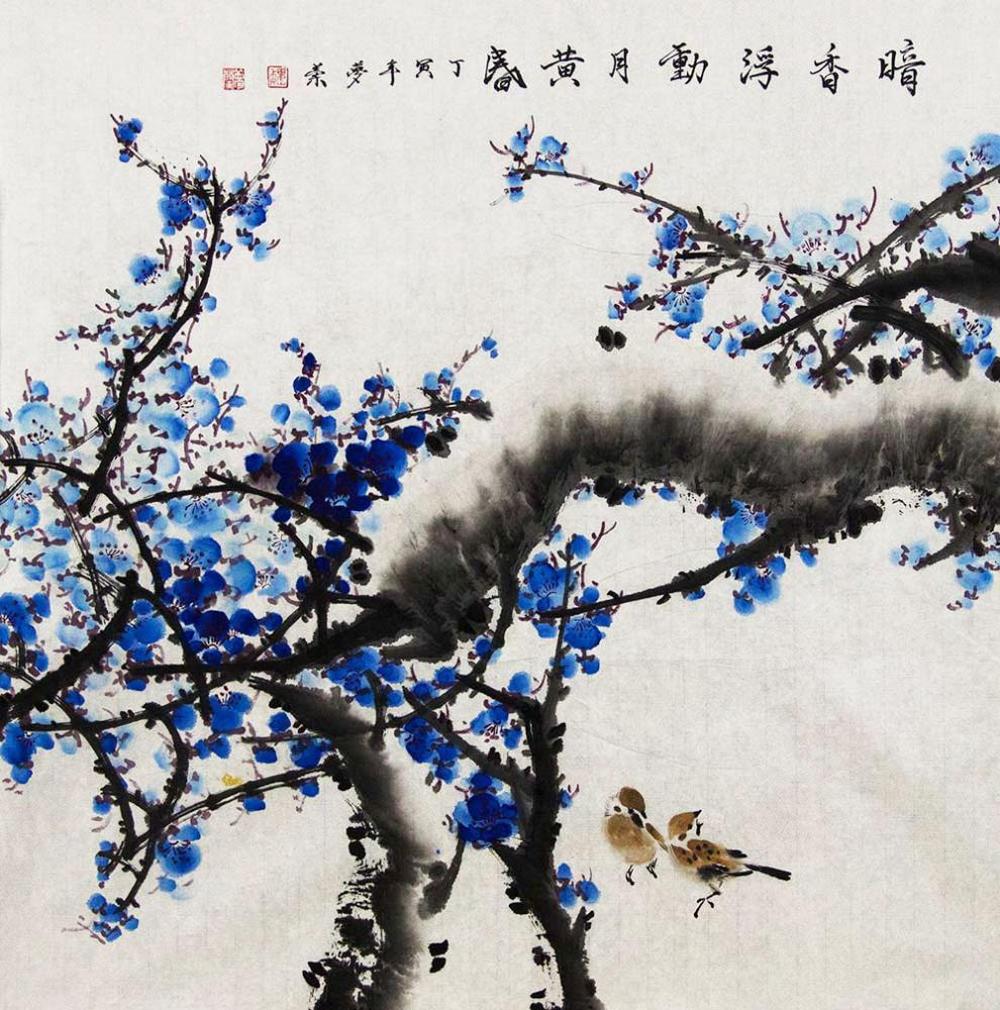 暗香浮動月黃昏丁寅年夢萘